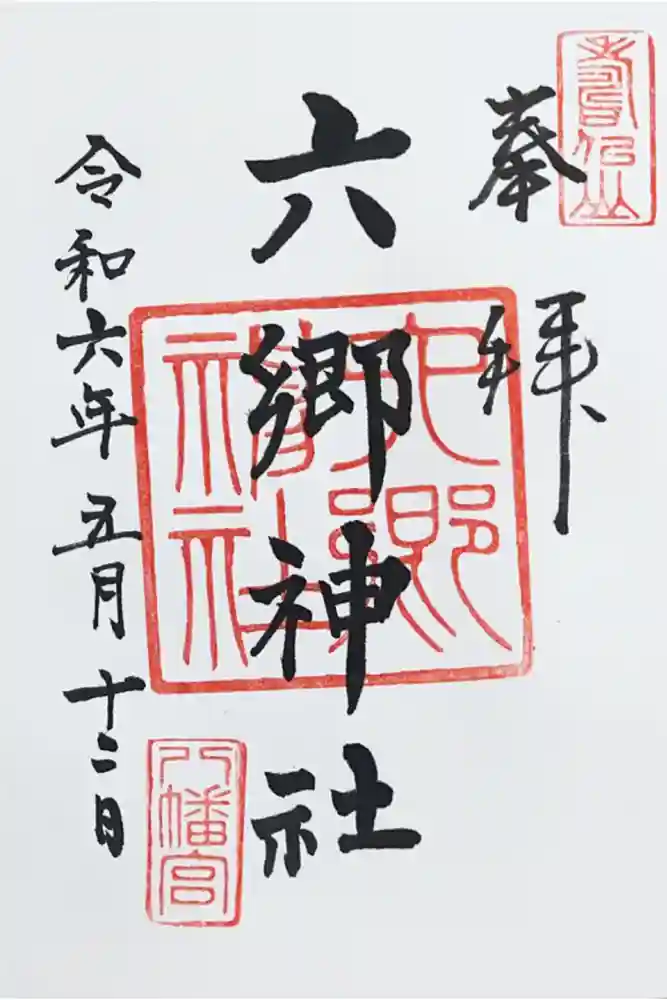 奉拝
六郷神社
令和六年五月十二日
六郷神社
八幡宮